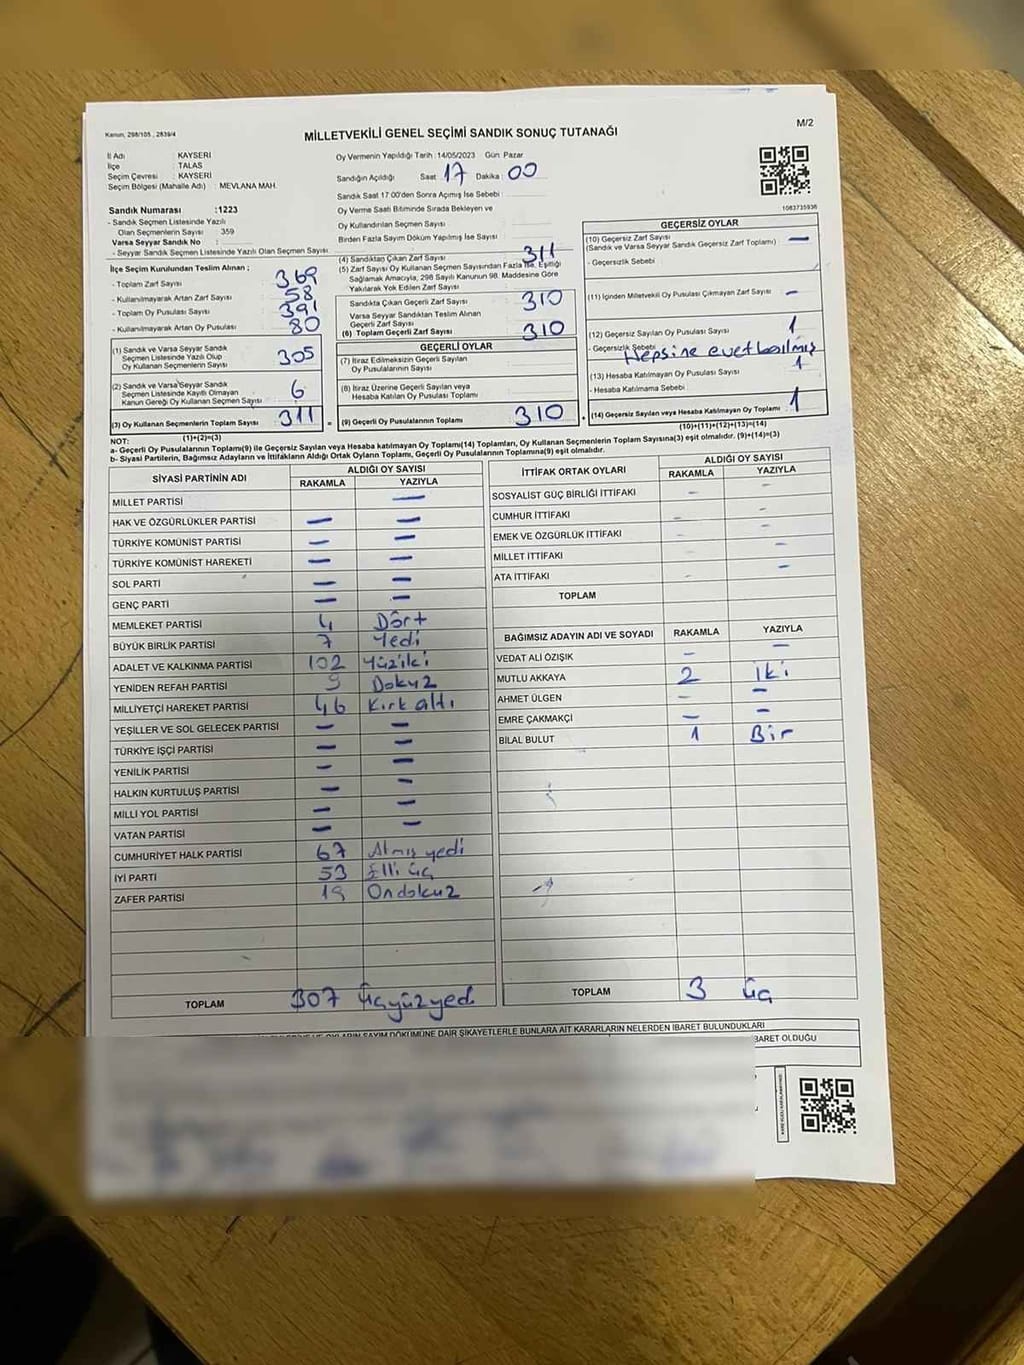 Kanun, 298/105 , 2839/4
M/2
MİLLETVEKİLİ GENEL SEÇİMİ SANDIK SONUÇ TUTANAĞI
İl Adı : KAYSERİ
İlçe : TALAS
Seçim Çevresi : KAYSERİ
Seçim Bölgesi (Mahalle Adı) : MEVLANA MAH.
Oy Vermenin Yapıldığı Tarih :14/05/2023 Gün Pazar
Sandığın Açıldığı Saat 17 Dakika : 00
Sandık Saat 17 00'den Sonra Açımış İse Sebebi :
Oy Verme Saati Bitiminde Sırada Bekleyen ve
Oy Kullandırılan Seçmen Sayısı :
Birden Fazla Sayım Döküm Yapılmış İse Sayısı :
1083735936
Sandık Numarası :1223
- Sandık Seçmen Listesinde Yazılı
Olan Seçmenlerin Sayısı 359
Varsa Seyyar Sandık No :
- Seyyar Sandık Seçmen Listesinde Yazılı Olan Seçmen Sayısı
İlçe Seçim Kurulundan Teslim Alınan ;
- Toplam Zarf Sayısı : 369
- Kullanılmayarak Artan Zarf Sayısı : 58
- Toplam Oy Pusulası Sayısı : 391
- Kullanılmayarak Artan Oy Pusulası : 80
(1) Sandık ve Varsa Seyyar Sandık
Seçmen Listesinde Yazılı Olup
Oy Kullanan Seçmenlerin Sayısı : 305
(2) Sandık ve Varsa Seyyar Sandık
Seçmen Listesinde Kayıtlı Olmayan
Kanun Gereği Oy Kullanan Seçmen Sayısı : 6
(3) Oy Kullanan Seçmenlerin Toplam Sayısı : 311
(1)+(2)=(3)
(4) Sandıktan Çıkan Zarf Sayısı : 311
(5) Zarf Sayısı Oy Kullanan Seçmen Sayısından Fazla İse, Eşitliği
Sağlamak Amacıyla; 298 Sayılı Kanunun 98. Maddesine Göre
Yakılarak Yok Edilen Zarf Sayısı :
Sandıkta Çıkan Geçerli Zarf Sayısı : 310
Varsa Seyyar Sandıktan Teslim Alınan
Geçerli Zarf Sayısı :
(6) Toplam Geçerli Zarf Sayısı : 310
GEÇERLİ OYLAR
(7) İtiraz Edilmeksizin Geçerli Sayılan
Oy Pusulasının Toplamı :
(8) İtiraz Üzerine Geçerli Sayılan veya
Hesaba Katılan Oy Pusulası Toplamı :
(9) Geçerli Oy Pusulalarının Toplamı : 310
GEÇERSİZ OYLAR
(10) Geçersiz Zarf Sayısı : —
(Sandık ve Varsa Seyyar Sandık Geçersiz Zarf Toplamı)
- Geçersizlik Sebebi :
(11) İçinden Milletvekili Oy Pusulası Çıkmayan Zarf Sayısı : —
(12) Geçersiz Sayılan Oy Pusulası Sayısı : 1
- Geçersizlik Sebebi : Hepsine evet basılmış
(13) Hesaba Katılmayan Oy Pusulası Sayısı : 1
- Hesaba Katılmama Sebebi :
(14) Geçersiz Sayılan veya Hesaba Katılmayan Oy Toplamı : 1
(10)+(11)+(12)+(13)=(14)
NOT:
a- Geçerli Oy Pusulalarının Toplamı(9) ile Geçersiz Sayılan veya Hesaba katılmayan Oy Toplamı(14) Toplamları, Oy Kullanan Seçmenlerin Toplam Sayısına(3) eşit olmalıdır. (9)+(14)=(3)
b- Siyasi Partilerin, Bağımsız Adayların ve İttifakların Aldığı Ortak Oyların Toplamı, Geçerli Oy Pusulalarının Toplamına(9) eşit olmalıdır.
SİYASİ PARTİNİN ADI ALDIĞI OY SAYISI
RAKAMLA YAZIYLA
MİLLET PARTİSİ —
HAK VE ÖZGÜRLÜKLER PARTİSİ — —
TÜRKİYE KOMÜNİST PARTİSİ — —
TÜRKİYE KOMÜNİST HAREKETİ — —
SOL PARTİ — —
GENÇ PARTİ — —
MEMLEKET PARTİSİ 4 Dört
BÜYÜK BİRLİK PARTİSİ 7 Yedi
ADALET VE KALKINMA PARTİSİ 102 Yüziki
YENİDEN REFAH PARTİSİ 9 Dokuz
MİLLİYETÇİ HAREKET PARTİSİ 46 Kırk altı
YEŞİLLER VE SOL GELECEK PARTİSİ — —
TÜRKİYE İŞÇİ PARTİSİ — —
YENİLİK PARTİSİ — —
HALKIN KURTULUŞ PARTİSİ — —
MİLLİ YOL PARTİSİ — —
VATAN PARTİSİ — —
CUMHURİYET HALK PARTİSİ 67 Atmış yedi
İYİ PARTİ 53 Elli üç
ZAFER PARTİSİ 19 Ondokuz
TOPLAM 307 Üçyüzyedi
İTTİFAK ORTAK OYLARI ALDIĞI OY SAYISI
RAKAMLA YAZIYLA
SOSYALİST GÜÇ BİRLİĞİ İTTİFAKI — —
CUMHUR İTTİFAKI — —
EMEK VE ÖZGÜRLÜK İTTİFAKI — —
MİLLET İTTİFAKI —
ATA İTTİFAKI — —
TOPLAM
BAĞIMSIZ ADAYIN ADI VE SOYADI RAKAMLA YAZIYLA
VEDAT ALİ ÖZIŞIK — —
MUTLU AKKAYA 2 İki
AHMET ÜLGEN — —
EMRE ÇAKMAKÇİ — —
BİLAL BULUT 1 Bir
TOPLAM 3 üç
OYLARIN SAYIM DÖKÜMÜNE DAİR ŞİKAYETLERLE BUNLARA AİT KARARLARIN NELERDEN İBARET BULUNDUKLARI
BARET OLDUĞU